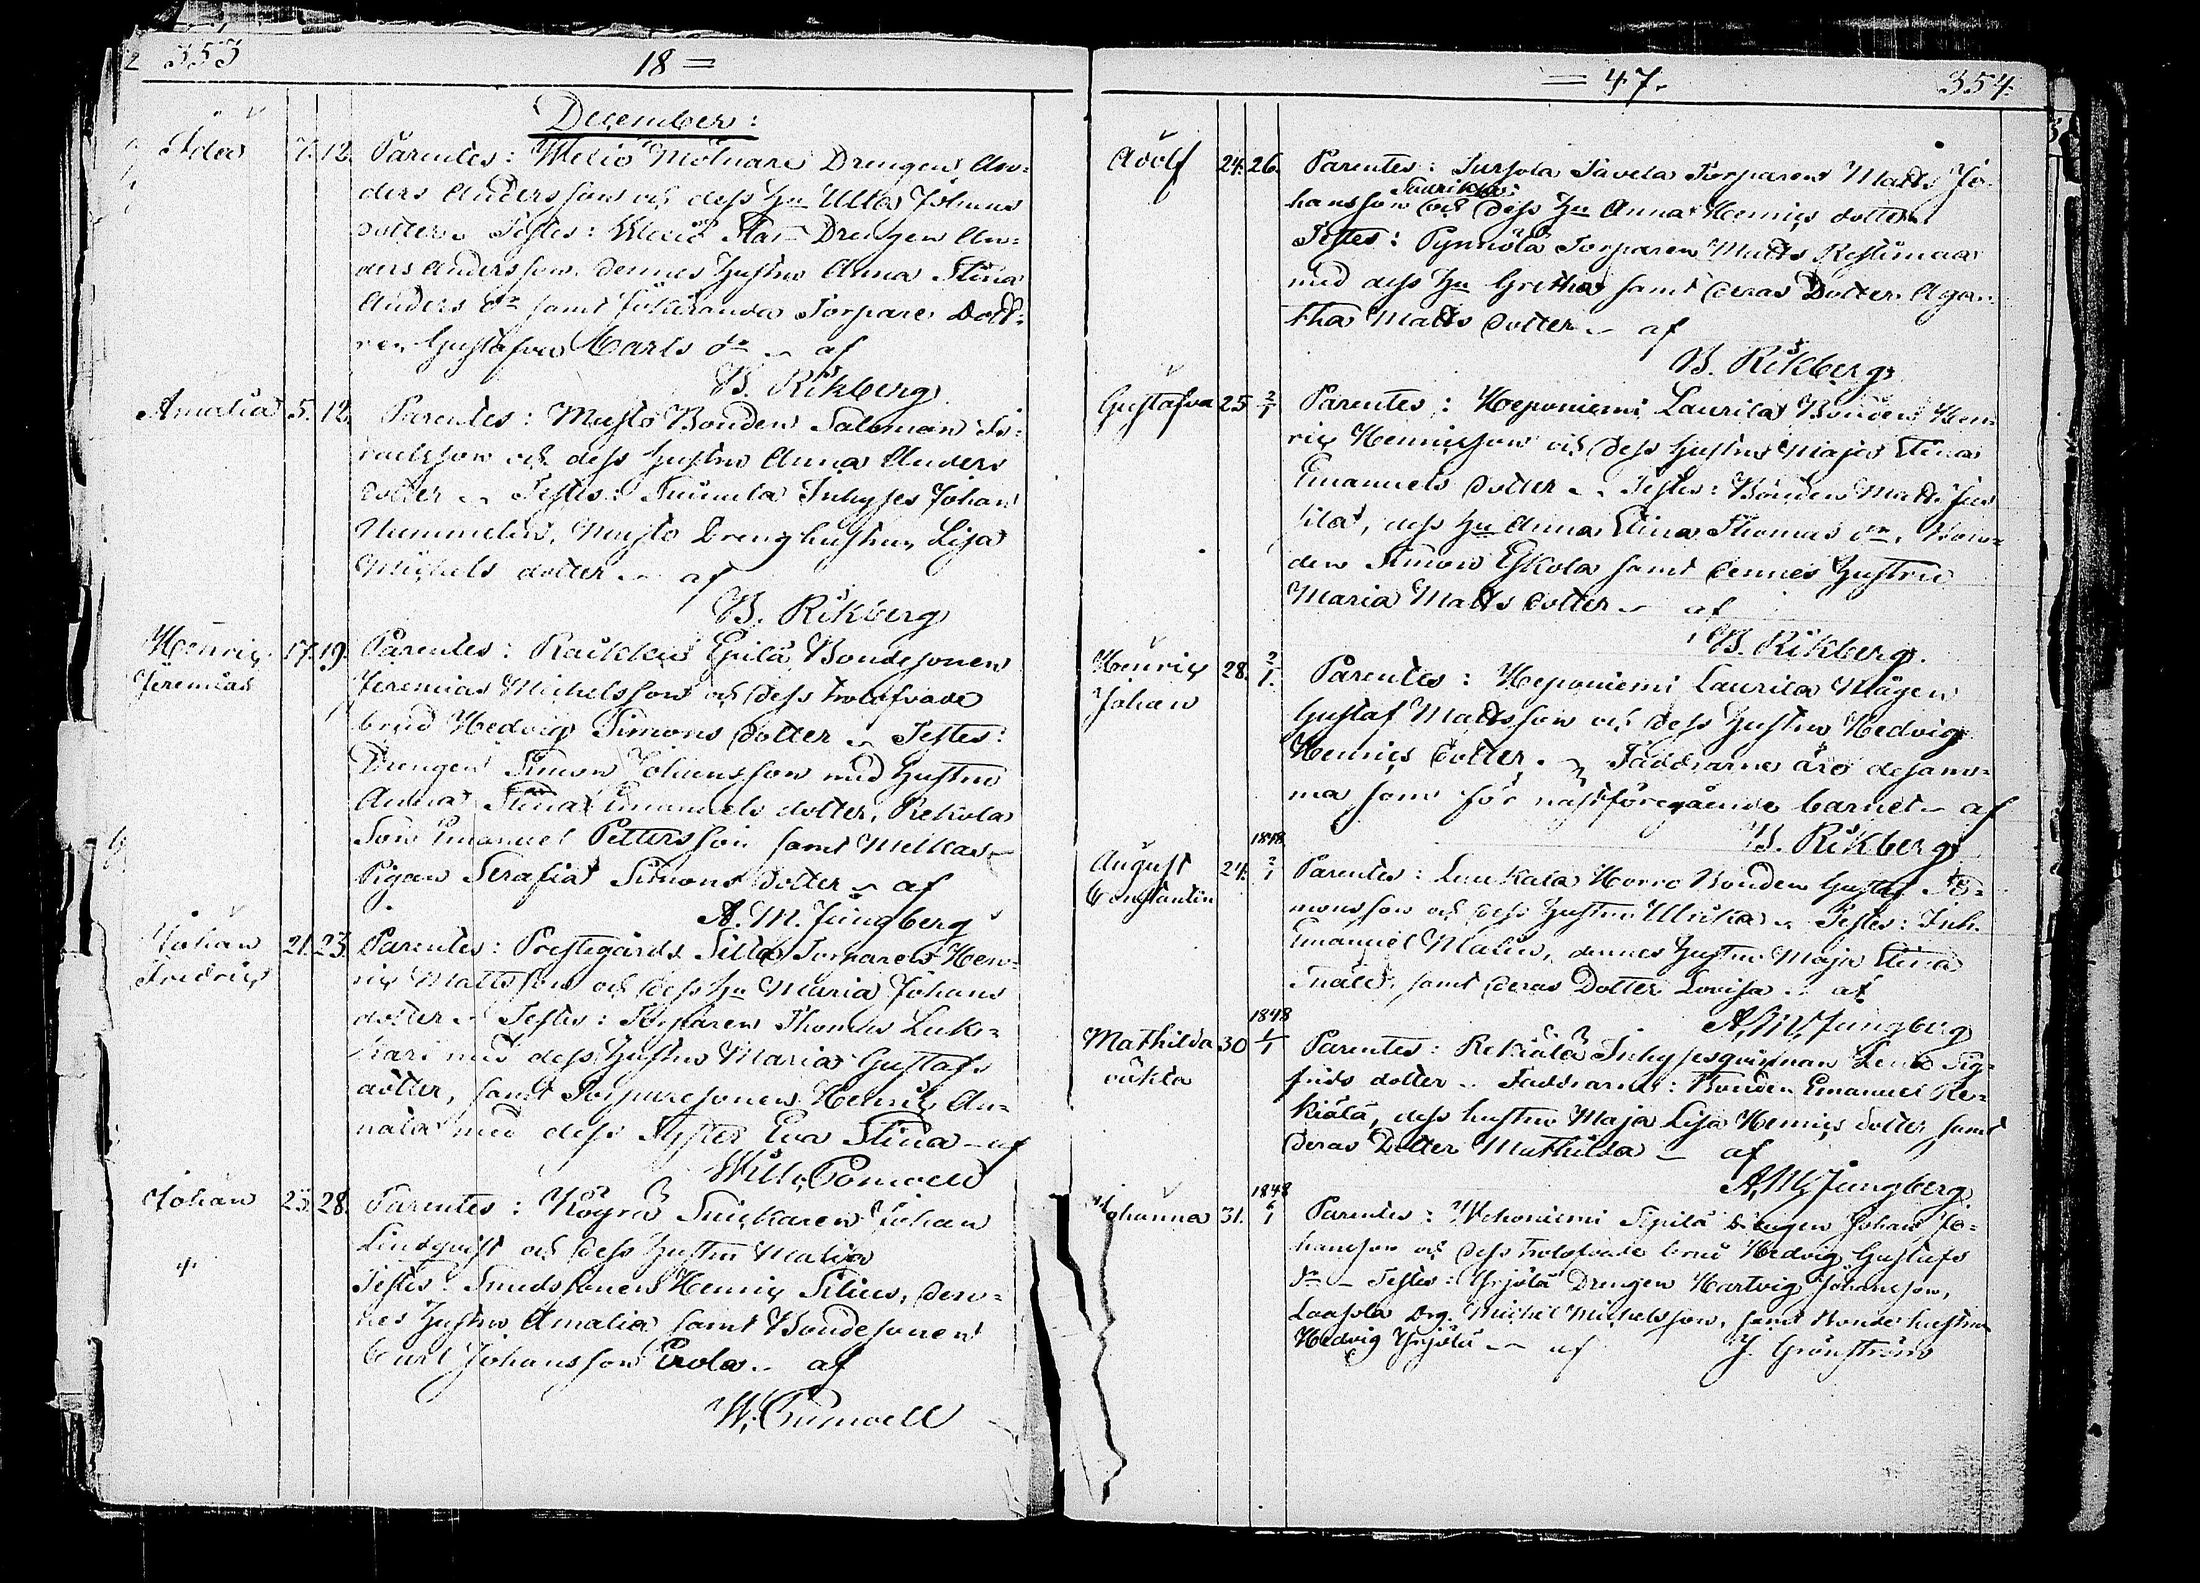 353
18 =
December:
Ida 7. 12. Parentes: Meiio Mölnare Drengen, An-
ders Andersson och dess Hu Ulla Johans
dotter. Testes: Drengen An-
ders Andersson, dennes Hustru Anna Stina
Anders dr samt Torpare Dott-
ren Gustafva Carls dr af
B. Rikberg.
Amalia 5. 12. Parentes: Musto Bonden Salomon Is-
raelsson och dess Hustru Anna Anders
dotter. Testes: Inhyses Johan
Nummelin, Musto Dreng hustru Lisa
Michels dotter af
B. Rikberg
Henric 17. 19. Parentes: Raikku Epilä Bondesonen
Jeremias
Jeremias Michelsson och dess trolofvade
brud Hedvig Simons dotter. Testes:
Drengen Simon Johansson med Hustru
Anna Stina Emanuels dotter, Rekola
Son Emanuel Pettersson samt
Pigan Serafia Simons dotter af
A. M. Jungberg
Johan 21. 23. Parentes: Prestegårds Torparen Hen-
Fredric
ric Mattsson och dess Hu Maria Johans
dotter. Testes: Torparen Thomas Luk-
kari med dess Hustru Maria Gustafs
dotter, samt Torparesonen Henric An-
nala med dess Syster Eva Stina af
Will. Cornvell
Johan 25. 28. Parentes: Köyrä Snickaren Johan
Lindqvist och dess Hustru Maria
Testes: Smedssonen Henric Silius, den-
nes Hustru Amalia samt Bondesonen
Carl Johansson Erola af
= 47.
354.
Adolf 24. 26. Parentes: Sursola Savela Torparen Matts Jo-
hansson och dess Hu Anna Henrics dotter
Testes: Pynnölä Torparen Matts Restimaa
med dess Hu Gretha samt deras Dotter Aga-
tha Matts dotter af
B. Rikberg
Gustafva 25 2/1 Parentes: Heponiemi Laurila Bonden Hen-
ric Henricsson och dess Hustru Maja Stina
Emanuels dotter. Testes: Bonden Matts
dess Hu Anna Stina Thomas dr, Bon-
den Simon Eskola samt dennes Hustru
Maria Matts dotter af
B. Rikberg.
Henric 28. 2/1. Parentes: Heponiemi Laurila Mågen
Johan
Gustaf Mattsson och dess Hustru Hedvig
Henrics dotter. Faddrarne äro desam-
ma som för nästföregående barnet af
B. Rikberg
1848
August 24. 2/1 Parentes: Luukala Horro Bonden Gustaf Si-
Constantin
monsson och dess Hustru Ulrika. Testes: Inh.
Emanuel Malin, dennes Hustru Maja Stina
samt deras Dotter Lovisa af
A. M. Jungberg
1848
Mathilda 30 1/1 Parentes: Rekiälä Inhysesqvinnan Lena Sig-
oäkta
frids dotter. Faddrarne: Bonden Emanuel Re-
kiälä, dess hustru Maja Lisa Henrics dotter samt
deras Dotter Mathilda af
A. M. Jungberg.
1848
Johanna 31. 6/1 Parentes: Wehoniemi Sipilä drengen Johan Jo-
hansson och dess trolofvade brud Hedvig Gustafs
dr Testes: Yrjölä Drengen Hartvig Johansson,
Laasola Drg. Michel Michelsson, samt Bonde hustru
Hedvig Yrjölä af J. Grönström